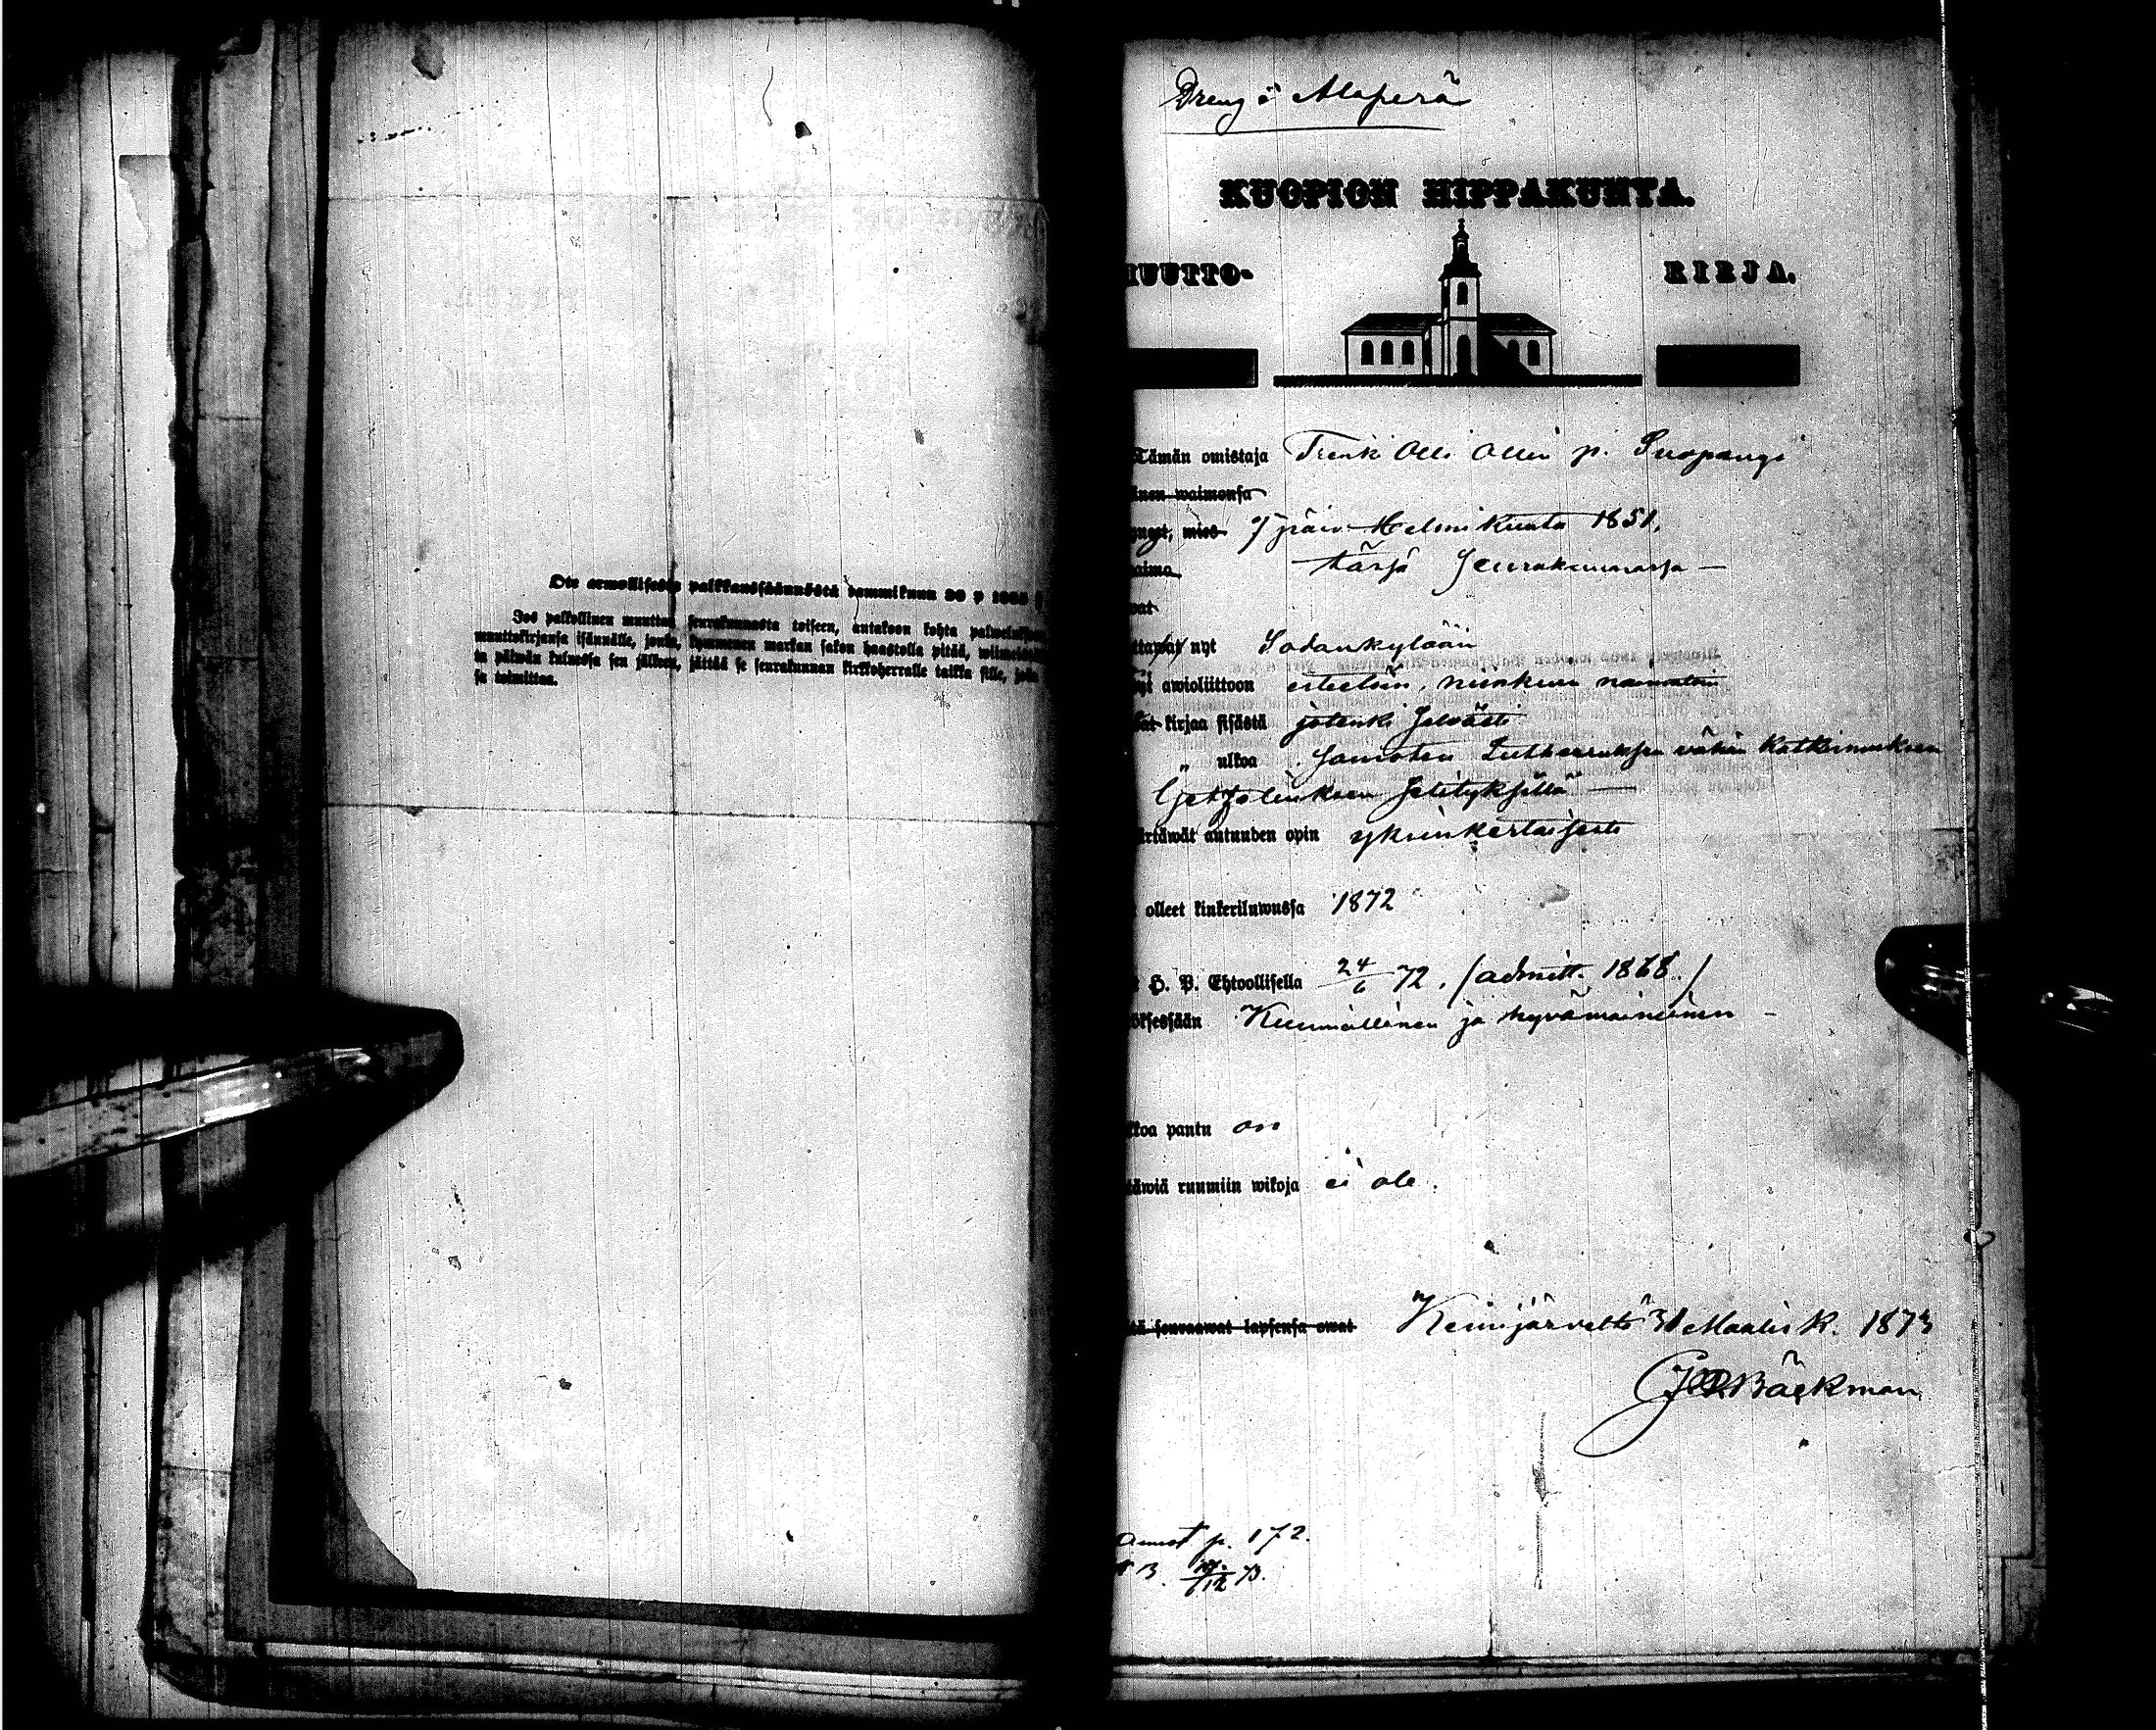 Ote armollisesta palkkaussäännöstä tammikuun 30 p 1865
Jos palkollinen muuttaa seurakunnasta toiseen, antakoon kohta
muuttokirjansa isännälle, jonka, kymmenen markan sakon haastolla pitää,
päiwän kuluessa sen jälkeen, jättää se seurakunnan kirkkoherralle taikka sille,
sa toimittaa.
Dreng i Alaperä
KUOPION HIPPAKUNTA.
MUUTTO-
KIRJA.
Tämän omistaja Trenki Olli Ollin p. Suopangi
inen waimonsa
nyt, mies 7 päiv. Helmikuuta 1851,
aimo tässä Seurakunnassa —
wat
ttawat nyt Sodankylään
awioliittoon esteetöin, niinkuin naimatoin
kirjaa sisästä jotenki Selvästi
„ ulkoa Samoten Lutheruksen vähän Katkismuksen
Selityksillä —
rtäwät autuuden opin yksinkertaisesti
olleet kinkeriluwussa 1872
H. P. Ehtoollisella 24/6 72. (admitt. 1868.)
öksessään Kunniallinen ja hyvämaineinen -
kkoa pantu on
täwiä ruumiin wikoja ei ole.
tä seuraawat lapsensa owat Kemijärveltä 31 Maalis k. 1873
Bäckman
p. 172.